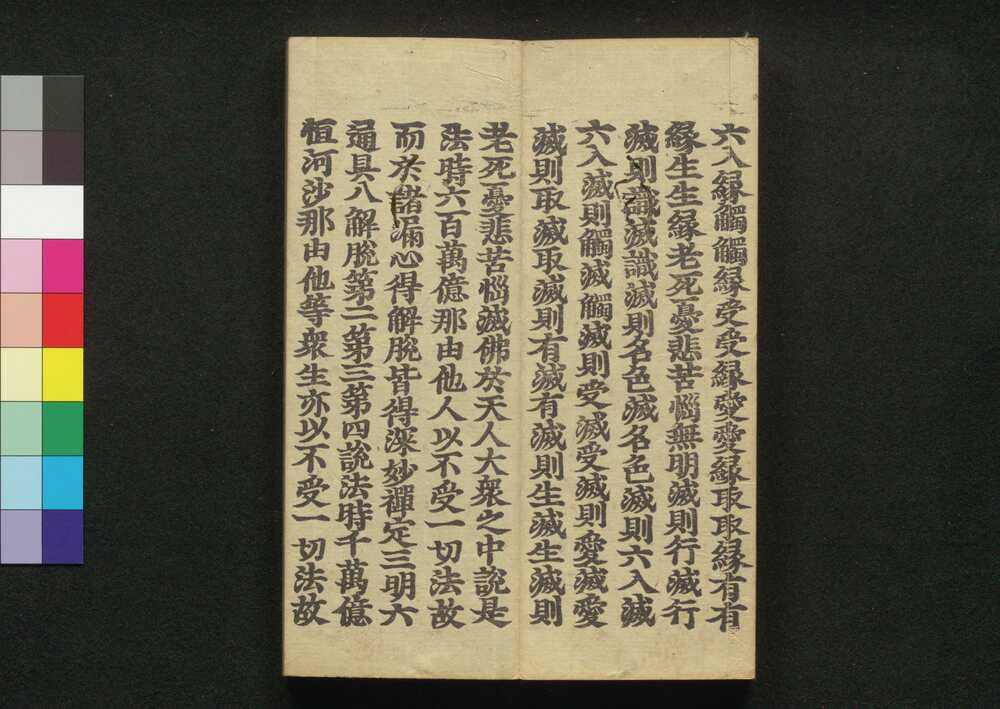 六入縁觸觸縁受受縁愛愛縁取取縁有有
縁生生縁老死憂悲苦惱無明滅則行滅行
滅則識滅識滅則名色滅名色滅則六入滅
六入滅則觸滅觸滅則受滅受滅則愛滅愛
滅則取滅取滅則有滅有滅則生滅生滅則
老死憂悲苦惱滅佛於天人大衆之中說是
法時六百萬億那由他人以不受一切法故
而於諸漏心得解脫皆得深妙禪定三明六
通具八解脫第二第三第四說法時千萬億
恒河沙那由他等衆生亦以不受一切法故